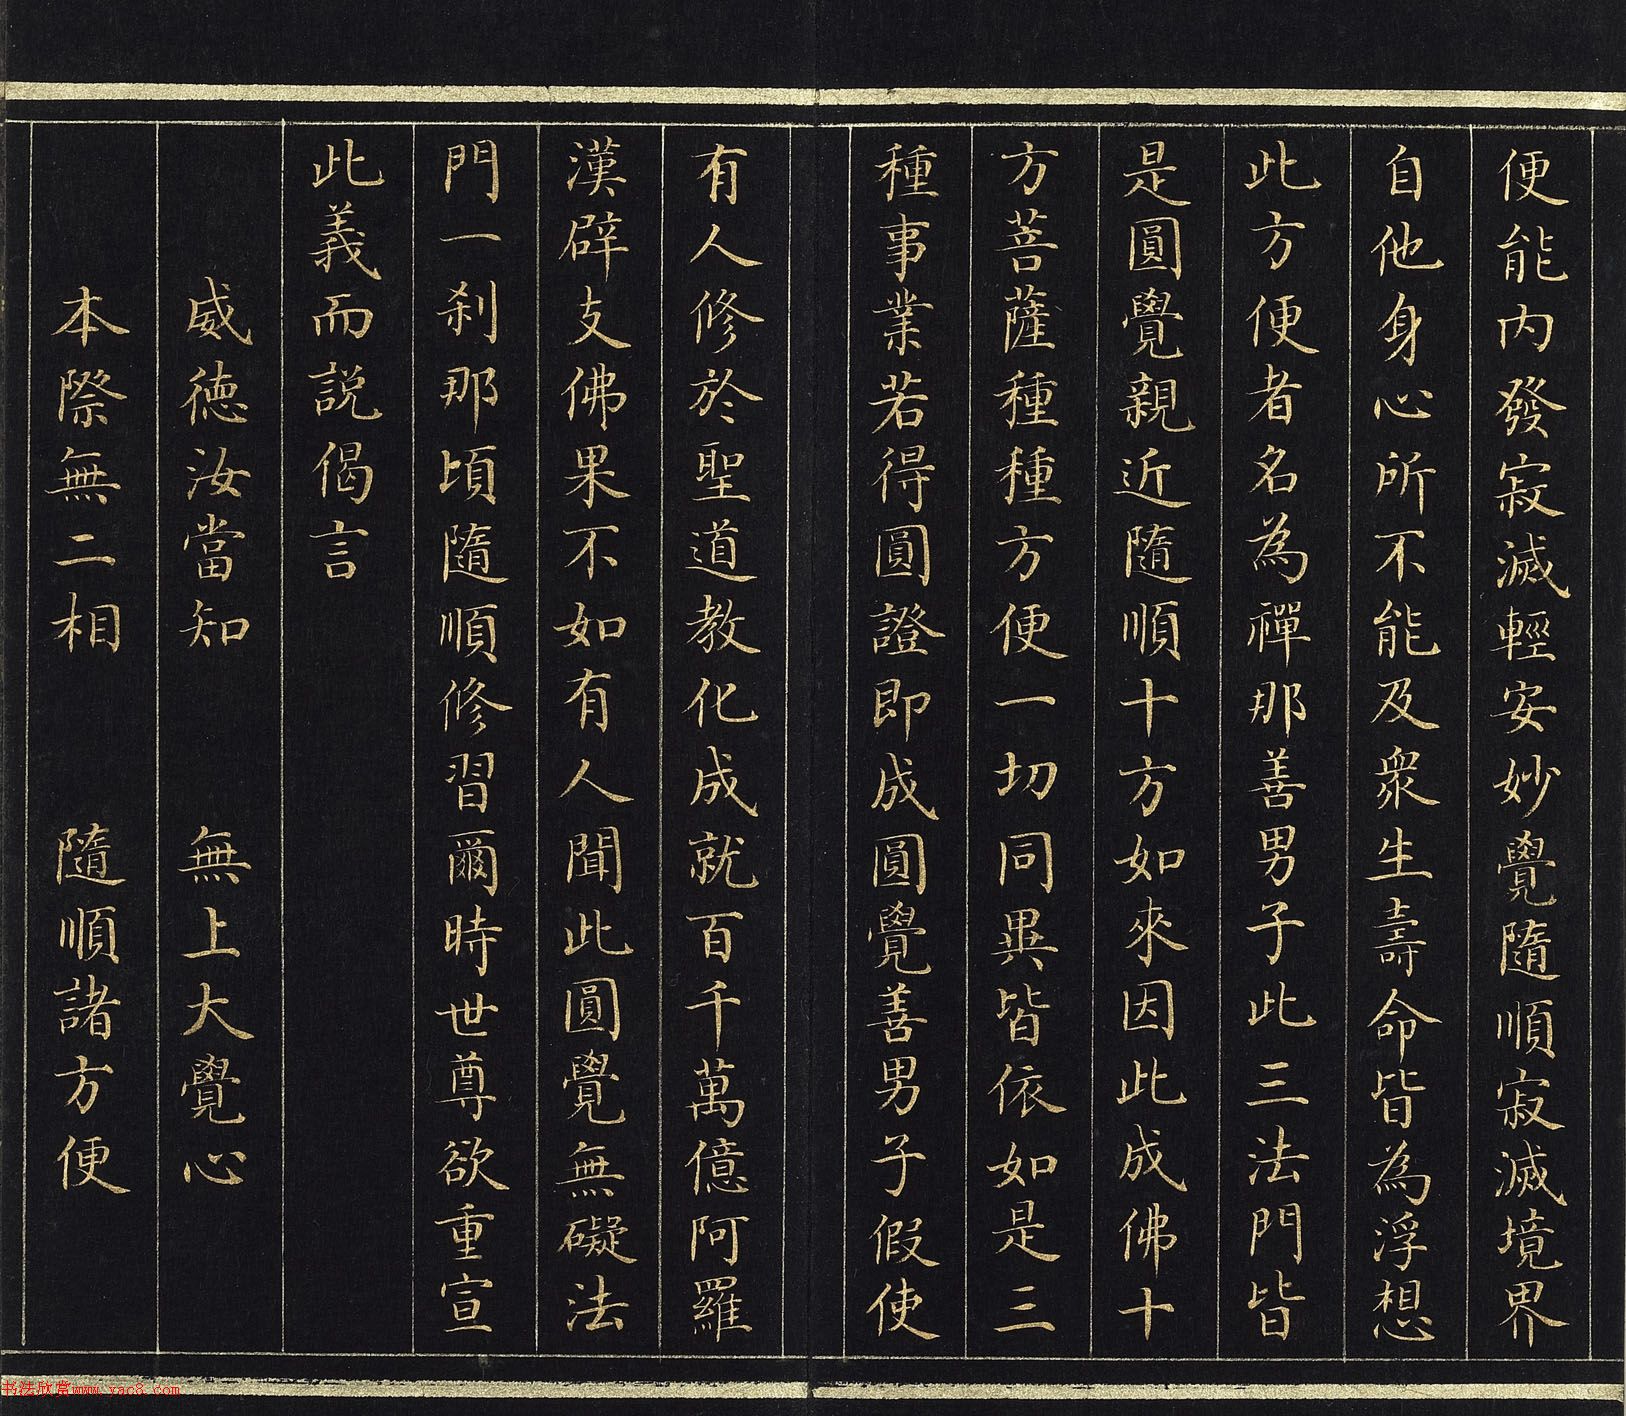 便能內發寂滅輕安妙覺隨順寂滅境界
自他身心所不能及衆生壽命皆為浮想
此方便者名為禪那善男子此三法門皆
是圓覺親近隨順十方如來因此成佛十
方菩薩種種方便一切同異皆依如是三
種事業若得圓證即成圓覺善男子假使
有人修於聖道教化成就百千萬億阿羅
漢辟支佛果不如有人聞此圓覺無礙法
門一刹那頃隨順修習爾時世尊欲重宣
此義而説偈言
威德汝當知 無上大覺心
本際無二相 隨順諸方便
书法欣赏www.yac8.com